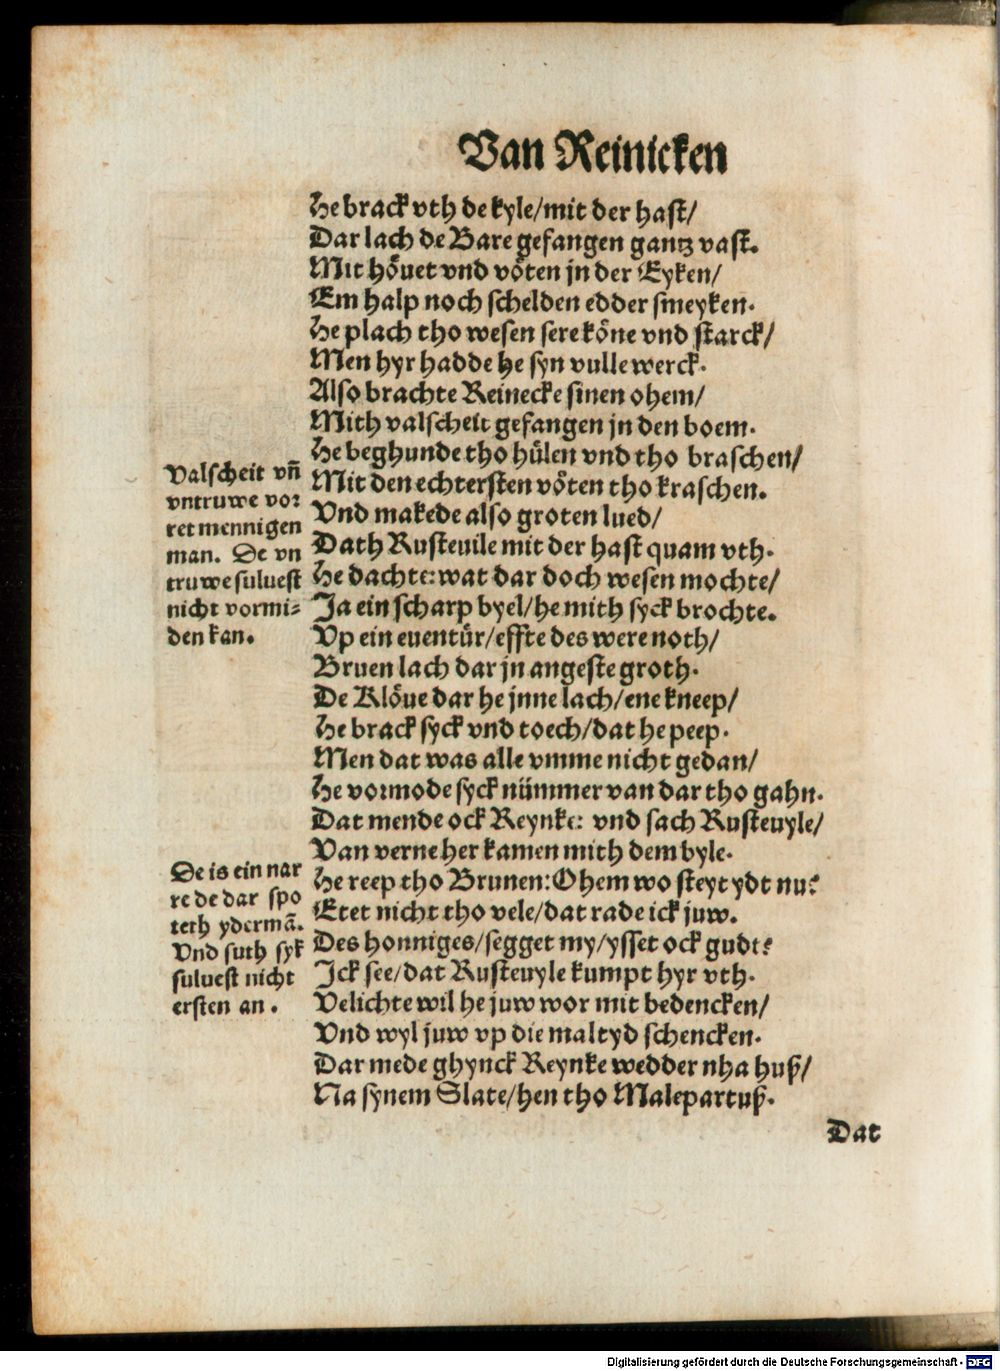 Van Reinicken
He brack vth de kyle/mit der hast/
Dar lach de Bare gefangen gantz vast.
Mit hoͤuet vnd voͤten jn der Eyken/
Em halp noch schelden edder smeyken.
He plach tho wesen sere koͤne vnd starck/
Men hyr hadde he syn vulle werck.
Also brachte Reinecke sinen ohem/
Mith valscheit gefangen jn den boem.
He beghunde tho huͤlen vnd tho braschen/
Mit den echtersten voͤten tho kraschen.
Vnd makede also groten lued/
Dath Rusteuile mit der hast quam vth.
He dachte: wat dar doch wesen mochte/
Ja ein scharp byel/he mith syck brochte.
Vp ein euentuͤr/effte des were noth/
Bruen lach dar jn angeste groth.
De Kloͤue dar he jnne lach/ene kneep/
He brack syck vnd toech/dat he peep.
Men dat was alle vmme nicht gedan/
He vormode syck nuͤmmer van dar tho gahn.
Dat mende ock Reynke: vnd sach Rusteuyle/
Van verne her kamen mith dem byle.
He reep tho Brunen: Ohem wo steyt ydt nu?
Etet nicht tho vele/dat rade ick juw.
Des honniges/segget my/ysset ock gudt?
Ick see/dat Rusteuyle kumpt hyr vth.
Velichte wil he juw wor mit bedencken/
Vnd wyl juw vp die maltyd schencken.
Dar mede ghynck Reynke wedder nha huß/
Na synem Slate/hen tho Malepartuß.
Dat
Valscheit vn̄
vntruwe vor
ret mennigen
man. De vn
truwe suluest
nicht vormi-
den kan.
De is ein nar
re de dar spo
teth ydermā.
Vnd suth syk
suluest nicht
ersten an.
Digitalisierung gefördert durch die Deutsche Forschungsgemeinschaft - DFG